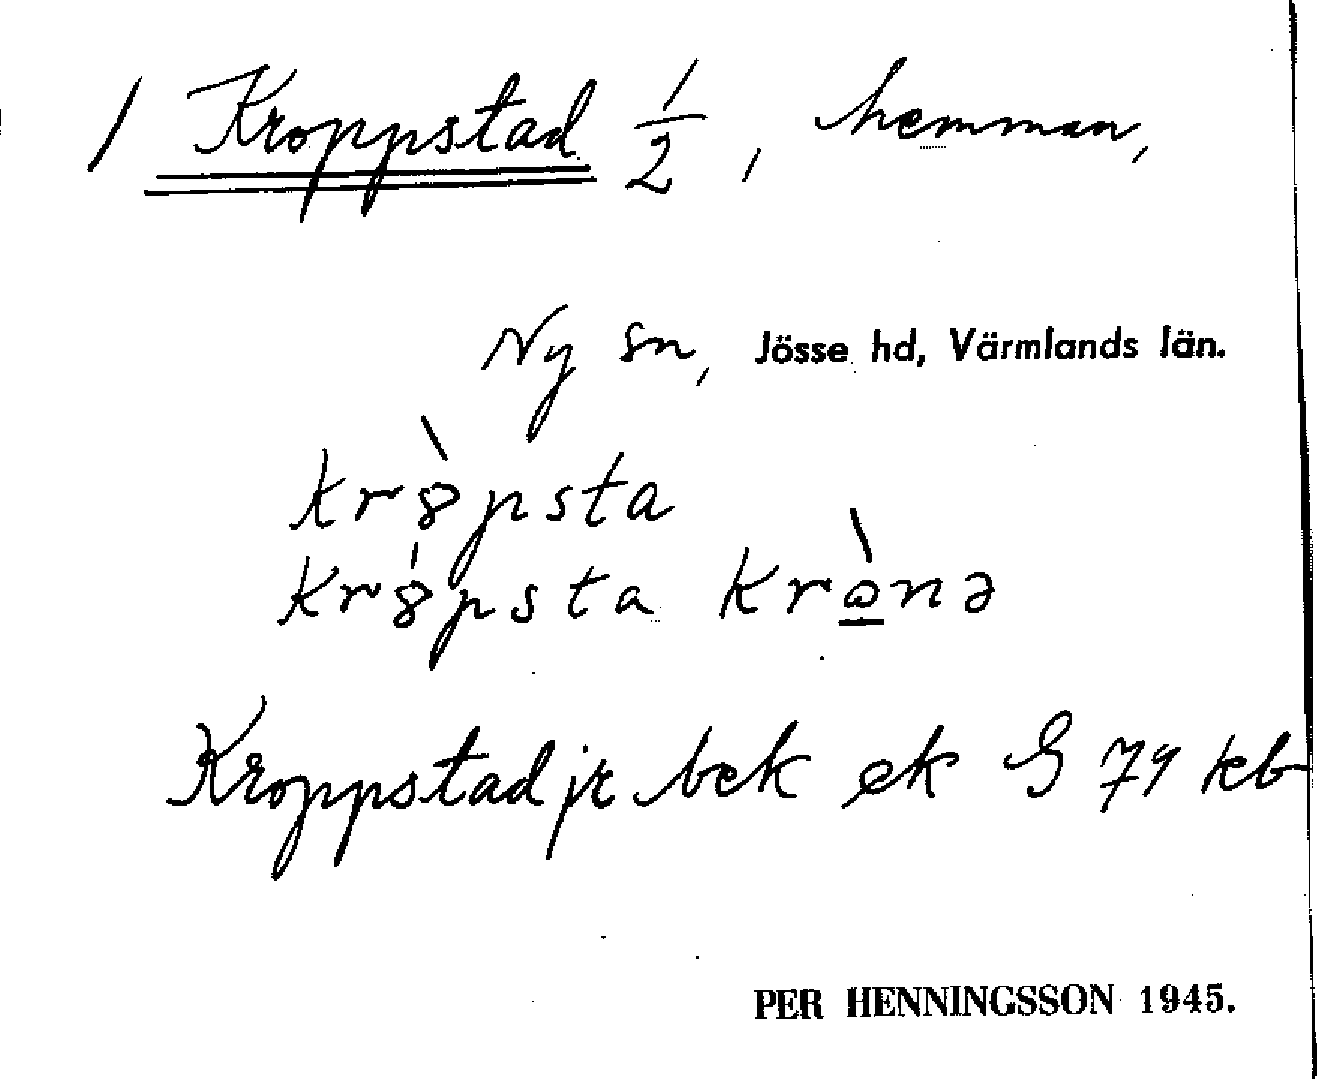 1 Kroppstad 1/2, hemman,
Ny sn, Jösse hd, Värmlands län.
kr8̀psta
Kr8́psta krònə
Kroppstad jr bek ek G 79 kb
PER HENNINGSSON 1945.